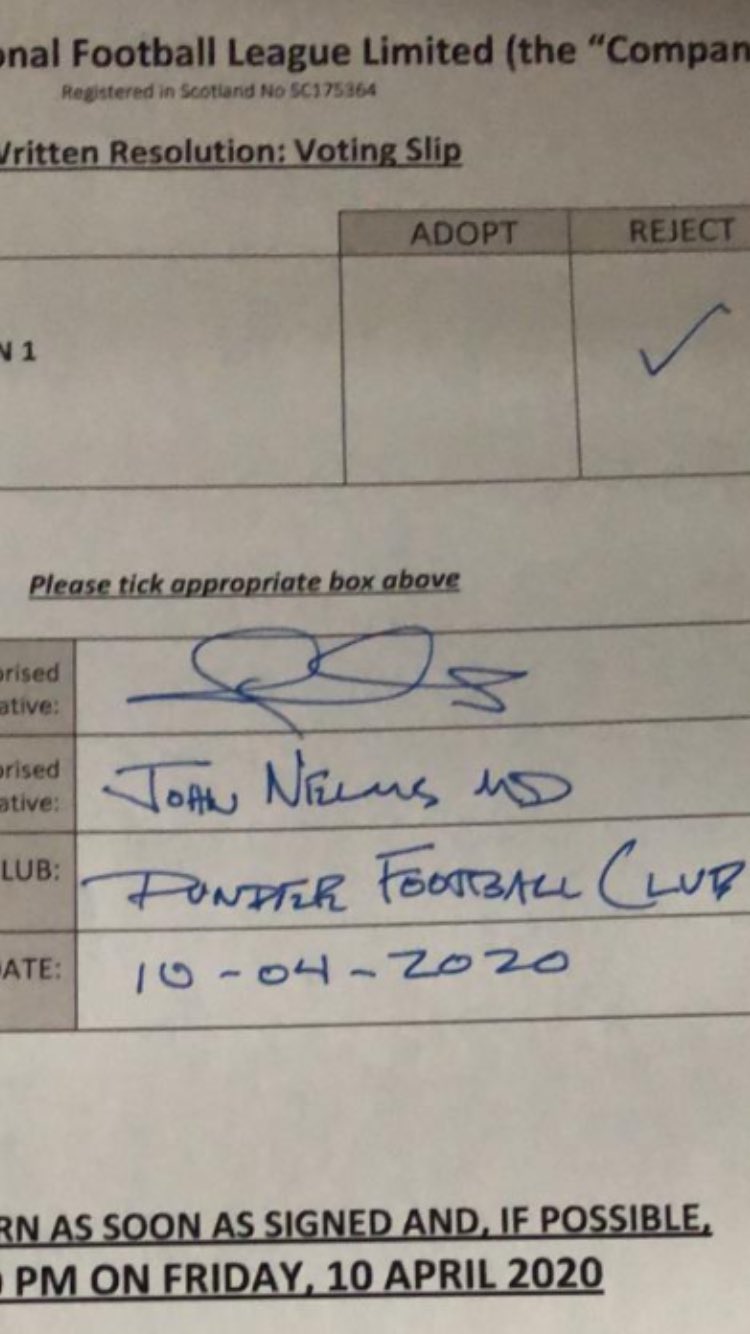 onal Football League Limited (the “Compan
Registered in Scotland No SC175364
Written Resolution: Voting Slip
ADOPT REJECT
N 1
Please tick appropriate box above
orised
ative:
orised
ative:
JOHN NELMS MD
LUB: DUNDEE FOOTBALL CLUB
ATE: 10-04-2020
RN AS SOON AS SIGNED AND, IF POSSIBLE,
0 PM ON FRIDAY, 10 APRIL 2020